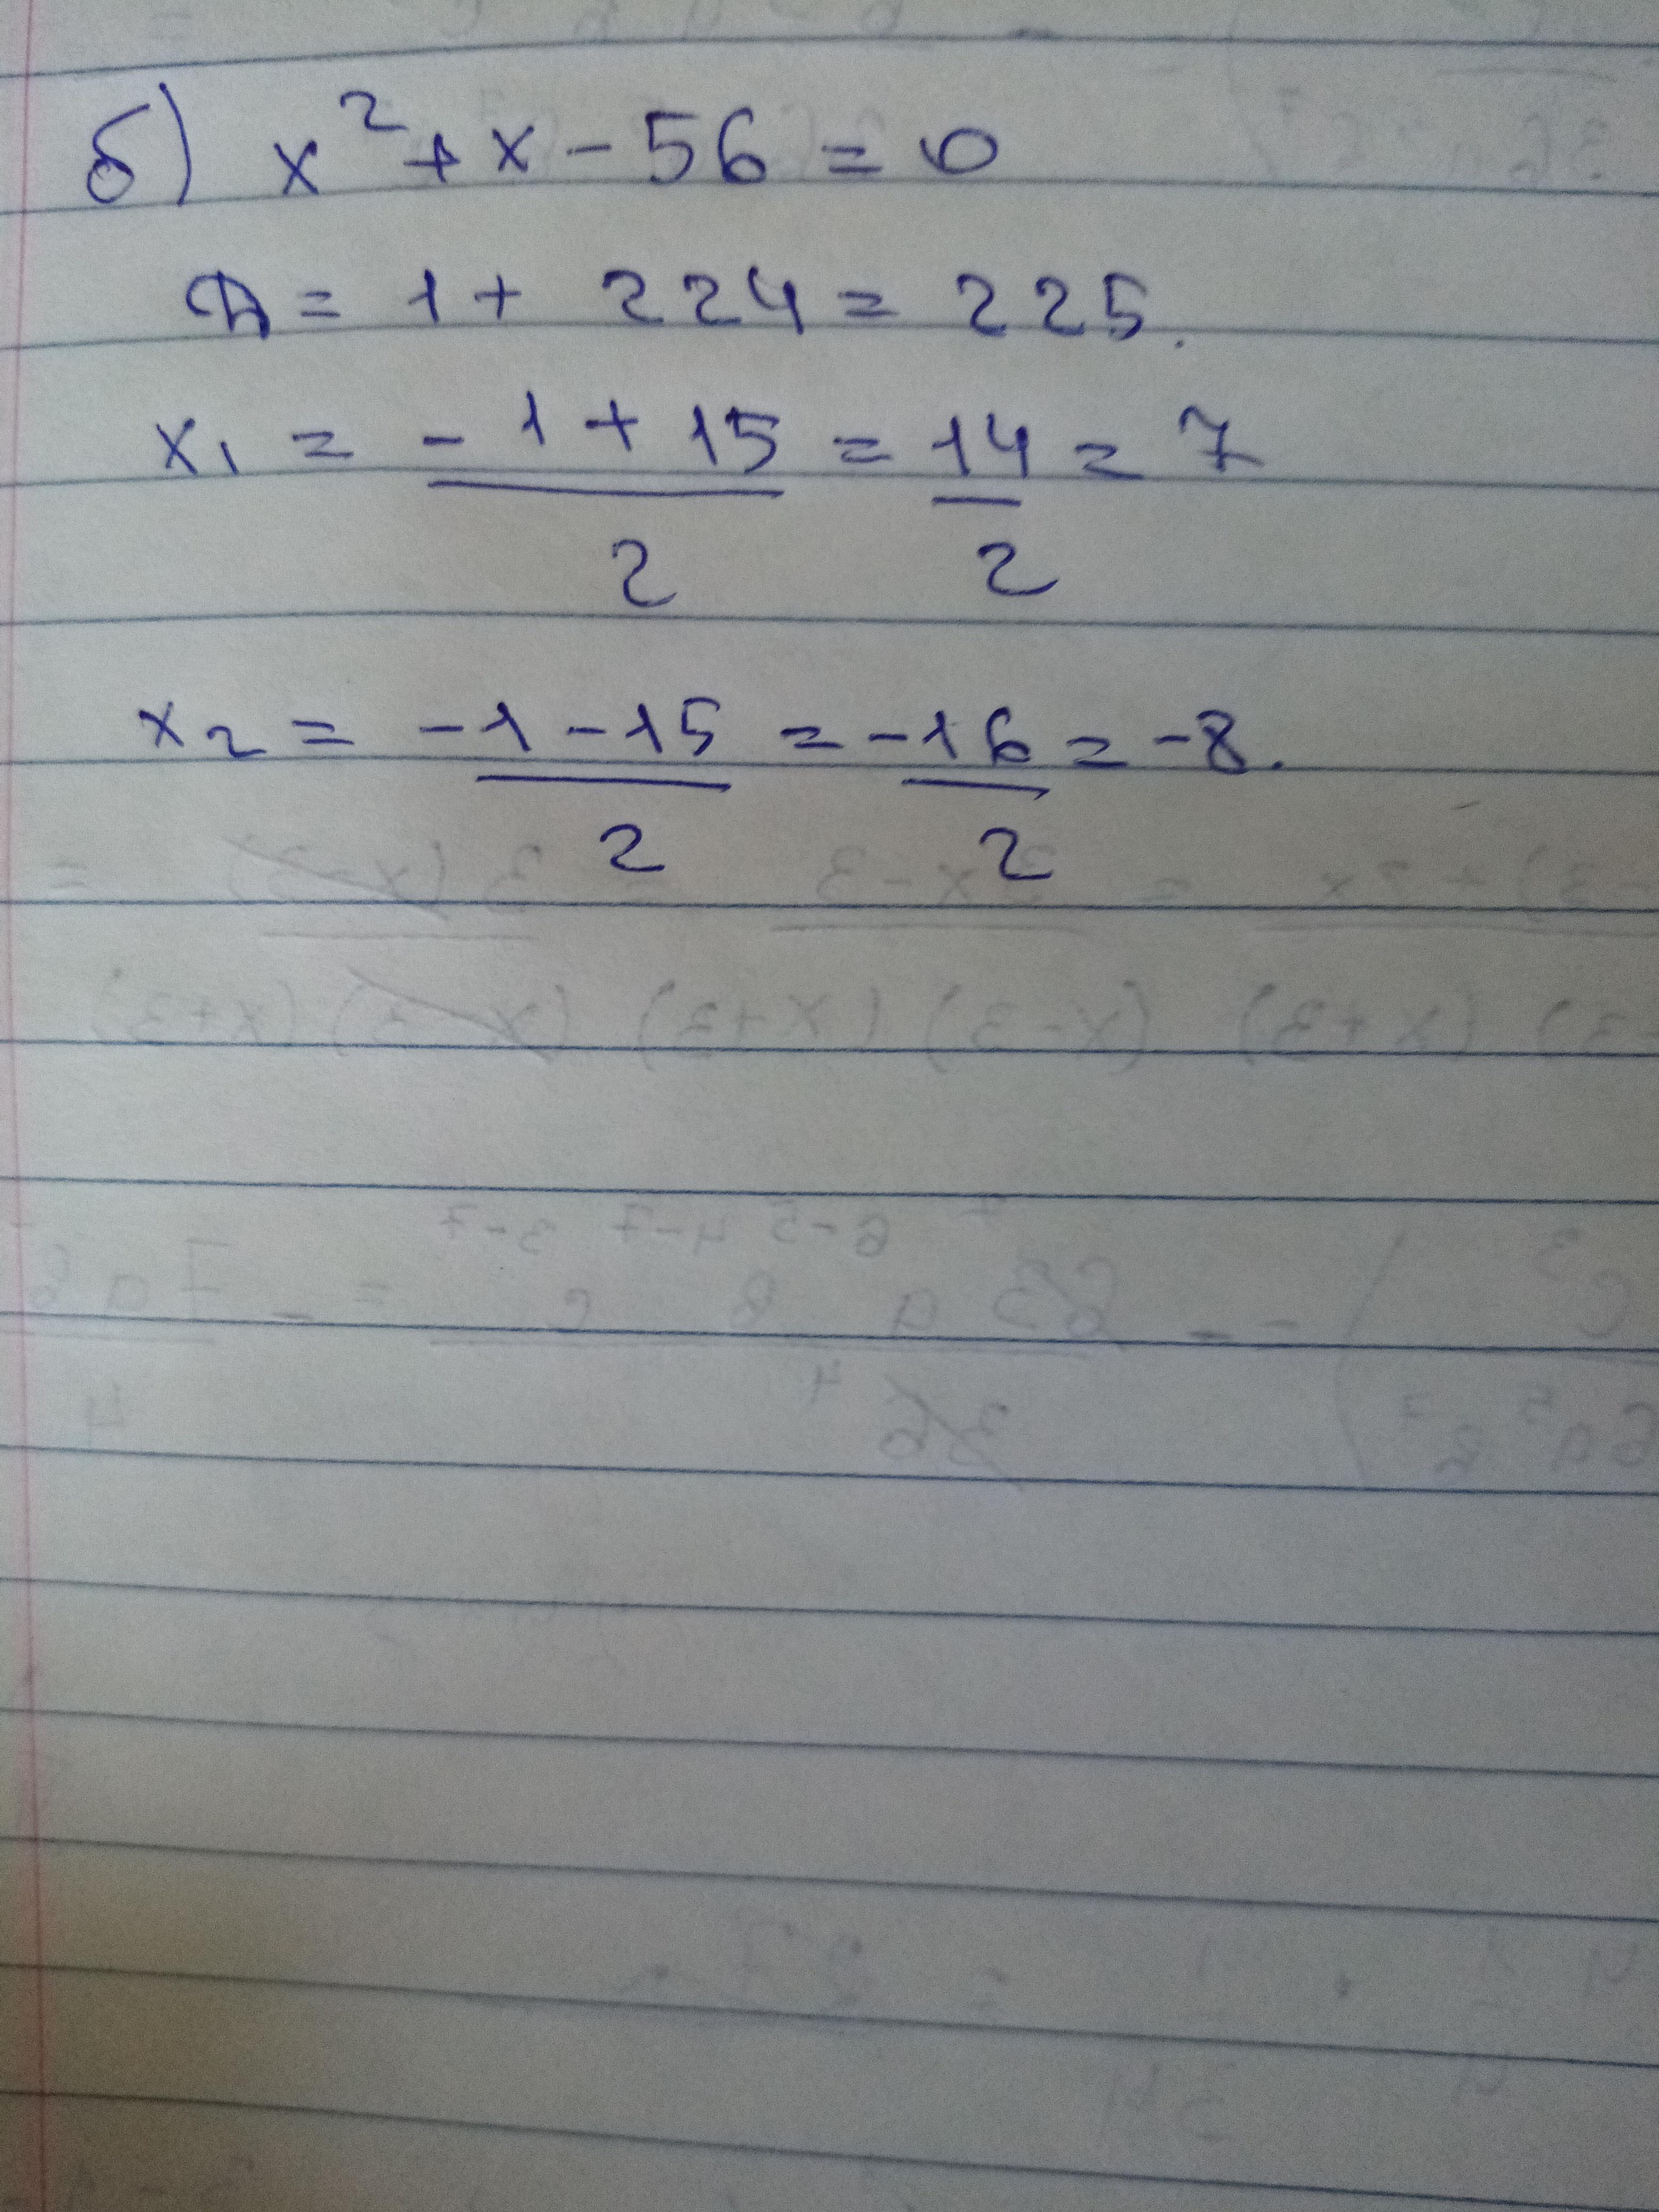 б) x² + x - 56 = 0
D = 1 + 224 = 225.
x₁ = (-1 + 15)/2 = 14/2 = 7
x₂ = (-1 - 15)/2 = -16/2 = -8.